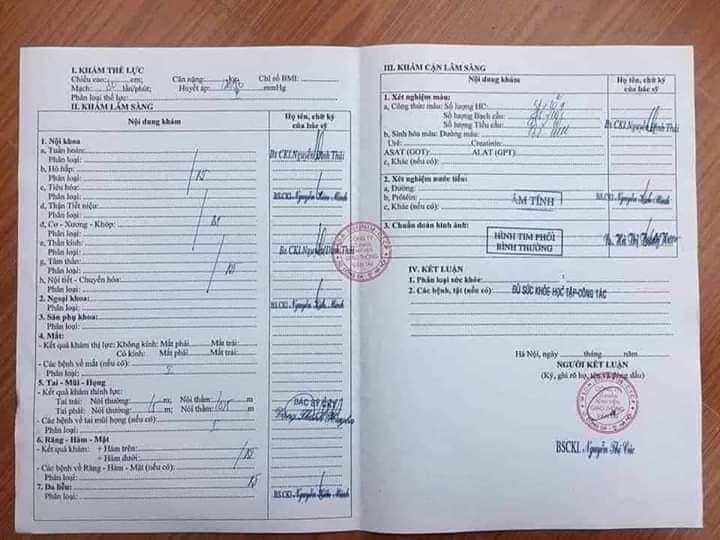 I. KHÁM THỂ LỰC
Chiều cao: cm; Cân nặng: Chỉ số BMI:
Mạch: 80 lần/phút; Huyết áp: mmHg
Phân loại thể lực:
II. KHÁM LÂM SÀNG
Nội dung khám
Họ tên, chữ ký của bác sỹ
1. Nội khoa
a, Tuần hoàn:
Phân loại:
Bs CKI. Nguyễn Đình Thái
b, Hô hấp:
Phân loại:
c, Tiêu hóa:
Phân loại:
BSCKI. Nguyễn Minh
d, Thận Tiết niệu:
Phân loại:
đ, Cơ - Xương - Khớp:
Phân loại:
e, Thần kinh:
Phân loại:
Bs CKI. Nguyễn Đình Thái
g, Tâm thần:
Phân loại:
h, Nội tiết - Chuyển hóa:
Phân loại:
2. Ngoại khoa:
Phân loại:
BSCKI. Nguyễn Minh
3. Sản phụ khoa:
4. Mắt:
- Kết quả khám thị lực: Không kính: Mắt phải Mắt trái:
Có kính: Mắt phải Mắt trái:
- Các bệnh về mắt (nếu có):
Phân loại:
5. Tai - Mũi - Họng
- Kết quả khám thính lực:
Tai trái: Nói thường: m; Nói thầm: m
Tai phải: Nói thường: 5 m; Nói thầm: 0,5 m
BÁC SỸ
- Các bệnh về tai mũi họng (nếu có):
Phân loại:
6. Răng - Hàm - Mặt
- Kết quả khám: + Hàm trên:
+ Hàm dưới:
- Các bệnh về Răng - Hàm - Mặt (nếu có):
Phân loại:
7. Da liễu:
Phân loại:
BSCKI. Nguyễn Minh
III. KHÁM CẬN LÂM SÀNG
Nội dung khám
Họ tên, chữ ký của bác sỹ
1. Xét nghiệm máu:
a, Công thức máu: Số lượng HC:
Số lượng Bạch cầu:
Số lượng Tiểu cầu:
Bs CKI. Nguyễn Đình Thái
b, Sinh hóa máu: Đường máu:
Urê: Creatinin:
ASAT (GOT): ALAT (GPT):
c, Khác (nếu có):
2. Xét nghiệm nước tiểu:
a, Đường:
b, Prôtêin:
c, Khác (nếu có):
ÂM TÍNH
BSCKI. Nguyễn Minh
3. Chuẩn đoán hình ảnh:
HÌNH TIM PHỔI
BÌNH THƯỜNG
IV. KẾT LUẬN
1. Phân loại sức khỏe:
2. Các bệnh, tật (nếu có): ĐỦ SỨC KHỎE HỌC TẬP-CÔNG TÁC
Hà Nội, ngày tháng năm
NGƯỜI KẾT LUẬN
(Ký, ghi rõ họ, tên và đóng dấu)
BSCKI. Nguyễn Thị Cúc